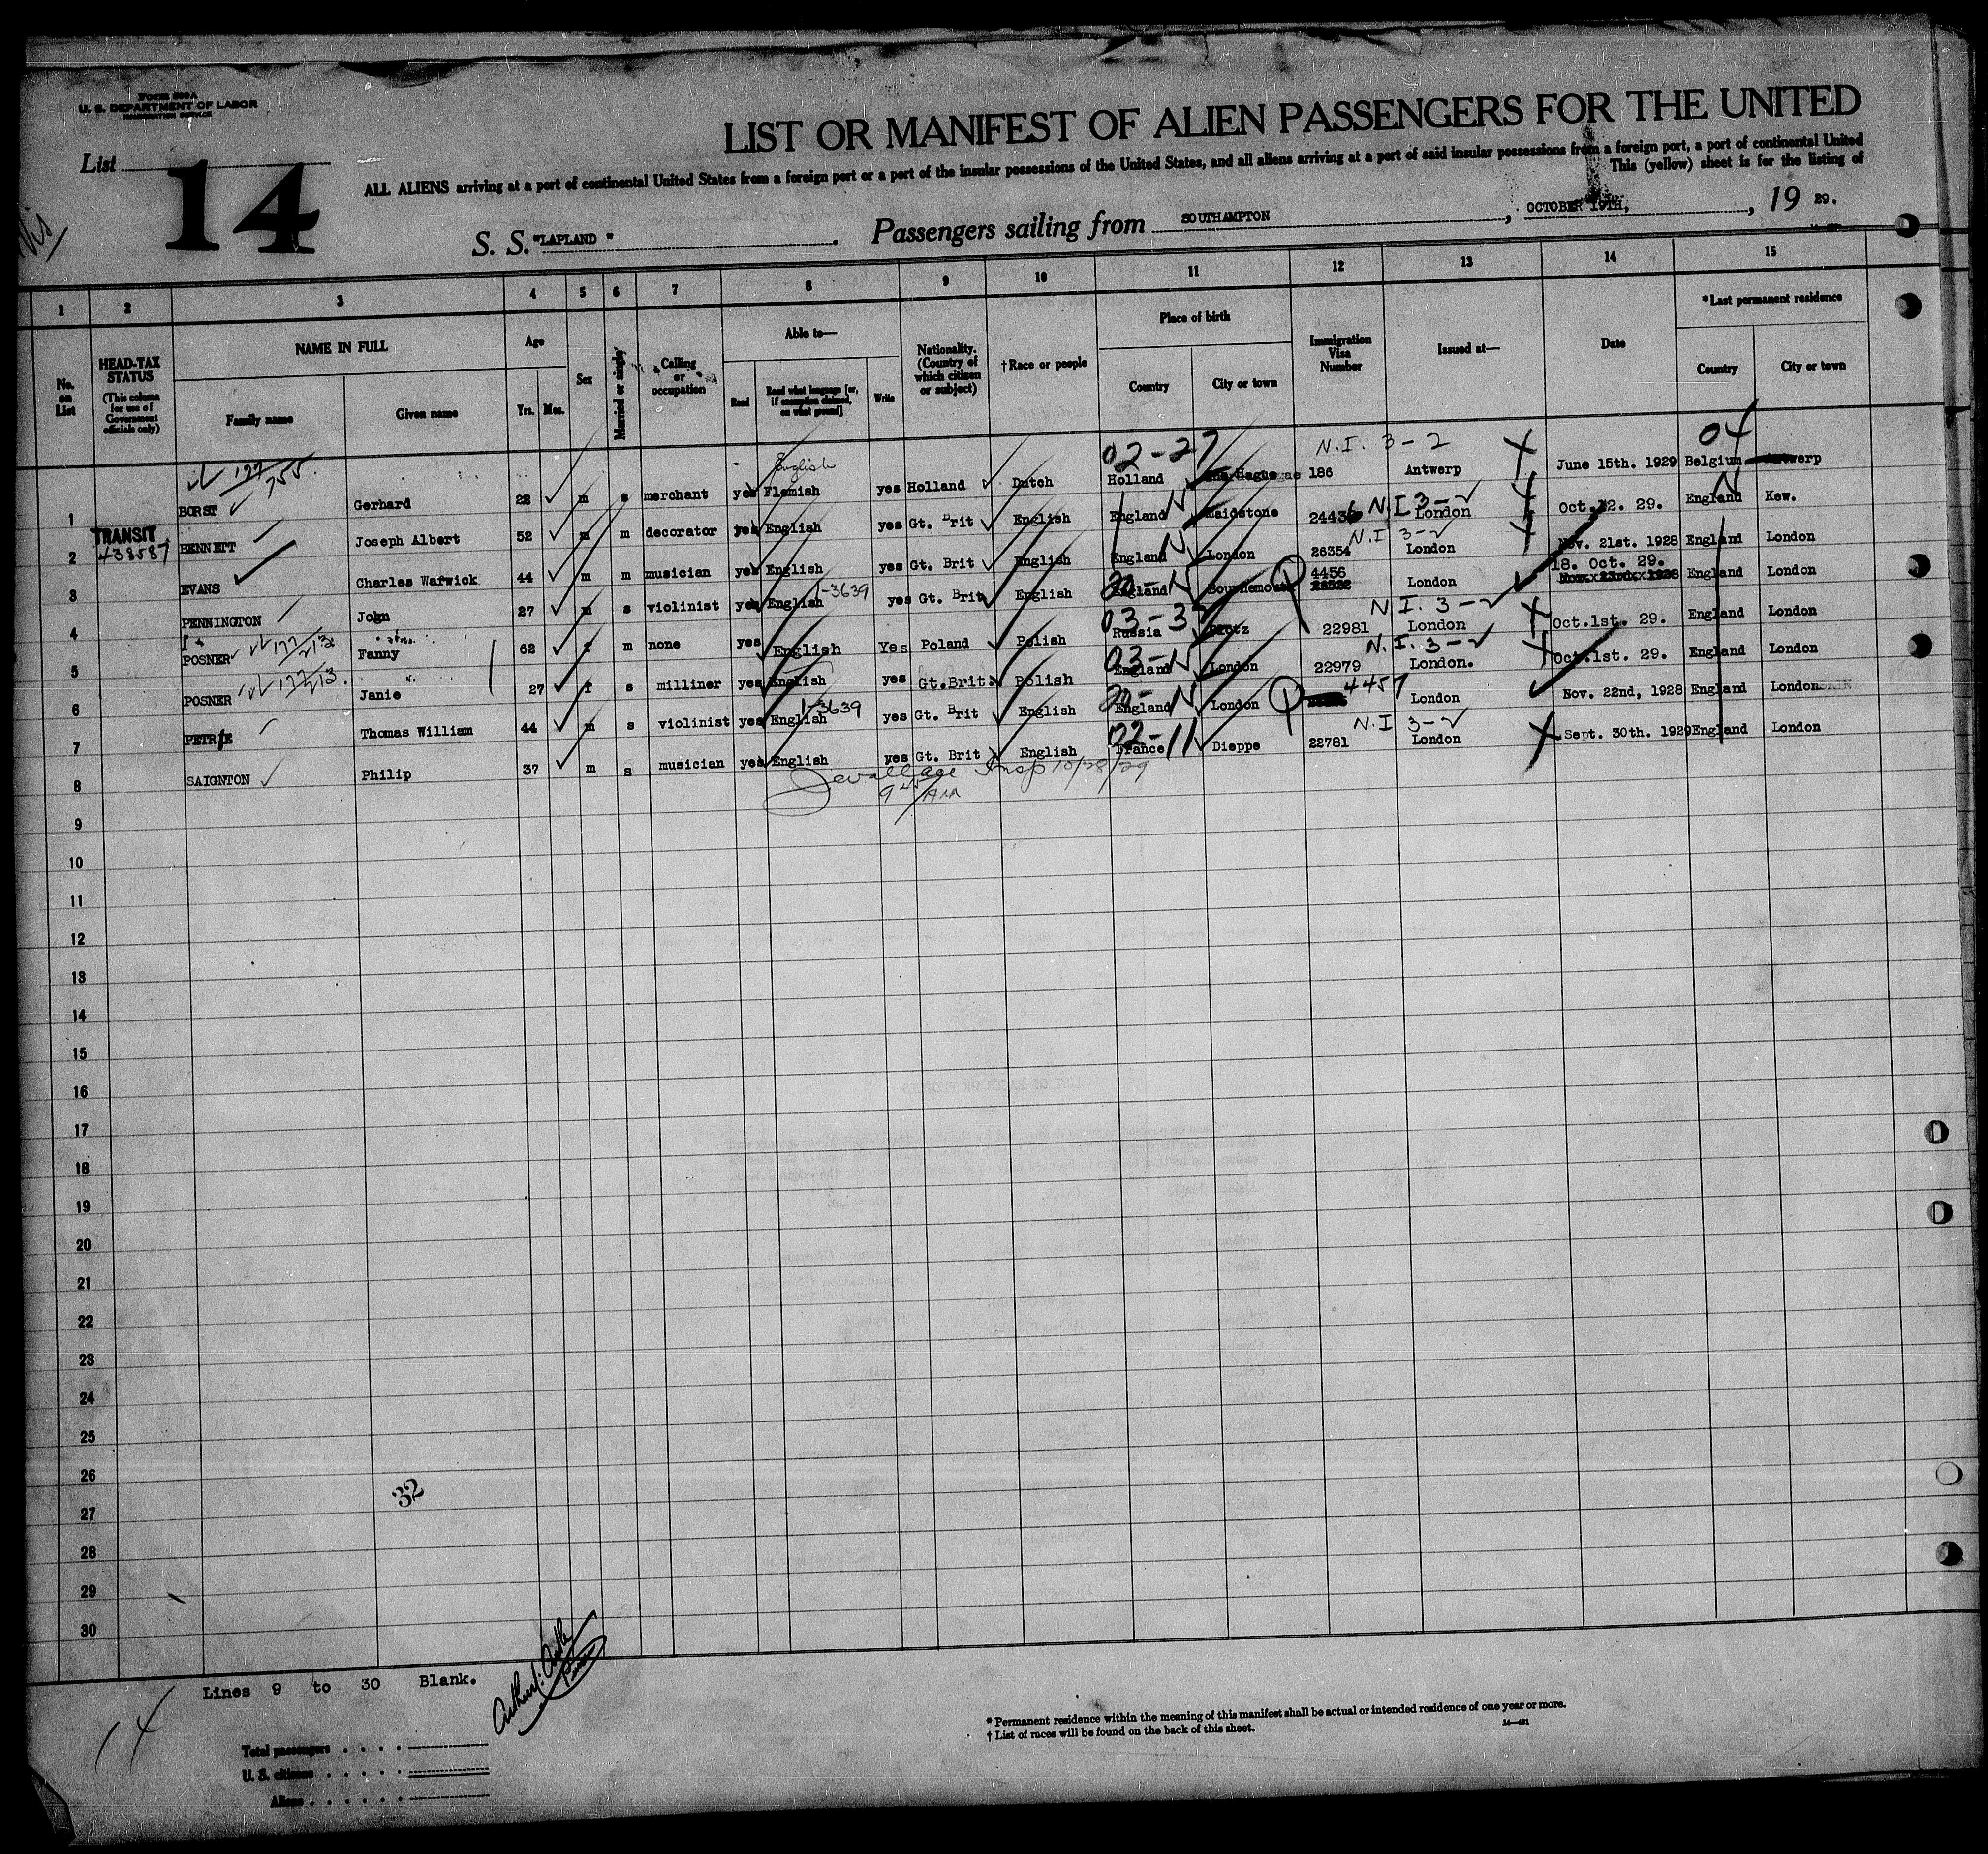 Form 500A
U. S. DEPARTMENT OF LABOR
IMMIGRATION SERVICE
List
14
LIST OR MANIFEST OF ALIEN PASSENGERS FOR THE UNITED
ALL ALIENS arriving at a port of continental United States from a foreign port or a port of the insular possessions of the United States, and all aliens arriving at a port of said insular possessions from a foreign port, a port of continental United
This (yellow) sheet is for the listing of
S. S. "LAPLAND" . Passengers sailing from SOUTHAMPTON , OCTOBER 19TH, , 19 29.
1 2 3 4 5 6 7 8 9 10 11 12 13 14 15
No. on List
HEAD-TAX STATUS (This column for use of Government officials only)
NAME IN FULL
Family name
Given name
Age
Yrs. Mos.
Sex
Married or single
Calling or occupation
Able to—
Read
Read what language [or, if exemption claimed, on what ground]
Write
Nationality. (Country of which citizen or subject)
†Race or people
Place of birth
Country
City or town
Immigration Visa Number
Issued at—
Date
*Last permanent residence
Country
City or town
177/755. English 02-27 N.I. 3-2 04
1 BORST Gerhard 22 m s merchant yes Flemish yes Holland Dutch Holland 186 Antwerp June 15th. 1929 Belgium Antwerp
TRANSIT
438587
N N.I 3-2 N
2 BENNETT Joseph Albert 52 m m decorator yes English yes Gt. Brit English England Maidstone 24436 London Oct. 12. 29. England Kew.
N N.I 3-2
3 EVANS Charles Warwick 44 m m musician yes English yes Gt. Brit English England London 26354 London Nov. 21st. 1928 England London
1-3639 N 4456 18. Oct. 29.
4 PENNINGTON John 27 m s violinist yes English yes Gt. Brit English England Bournemouth London England London
177/213 03-37 N.I. 3-2
5 POSNER Fanny 62 f m none yes English Yes Poland Polish Russia 22981 London Oct.1st. 29. England London
177/213. 03-N N.I. 3-2
6 POSNER Janie 27 f s milliner yes English yes Gt.Brit. Polish England London 22979 London. Oct.1st. 29. England London
1-3639 N 4457
7 PETRIE Thomas William 44 m s violinist yes English yes Gt. Brit English England London London Nov. 22nd, 1928 England London
02-11 N.I 3-2
8 SAIGNTON Philip 37 m s musician yes English yes Gt. Brit English France Dieppe 22781 London Sept. 30th. 1929 England London
Insp 10/28/29
9 AM
9
10
11
12
13
14
15
16
17
18
19
20
21
22
23
24
25
26
32
27
28
29
30
Lines 9 to 30 Blank.
14
Total passengers
U. S. citizens
Aliens
* Permanent residence within the meaning of this manifest shall be actual or intended residence of one year or more.
† List of races will be found on the back of this sheet.